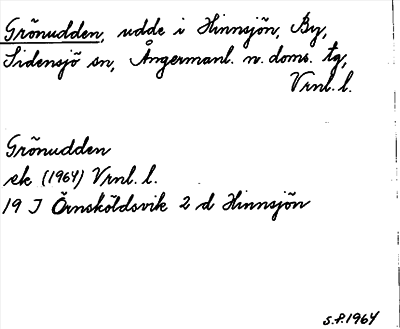 Grönudden, udde i Hinnsjön, By,
Sidensjö sn, Ångermanl. n. doms. tg,
Vrnl. l.
Grönudden
ek (1964) Vrnl. l.
19 J Örnsköldsvik 2 d Hinnsjön
S.P. 1964